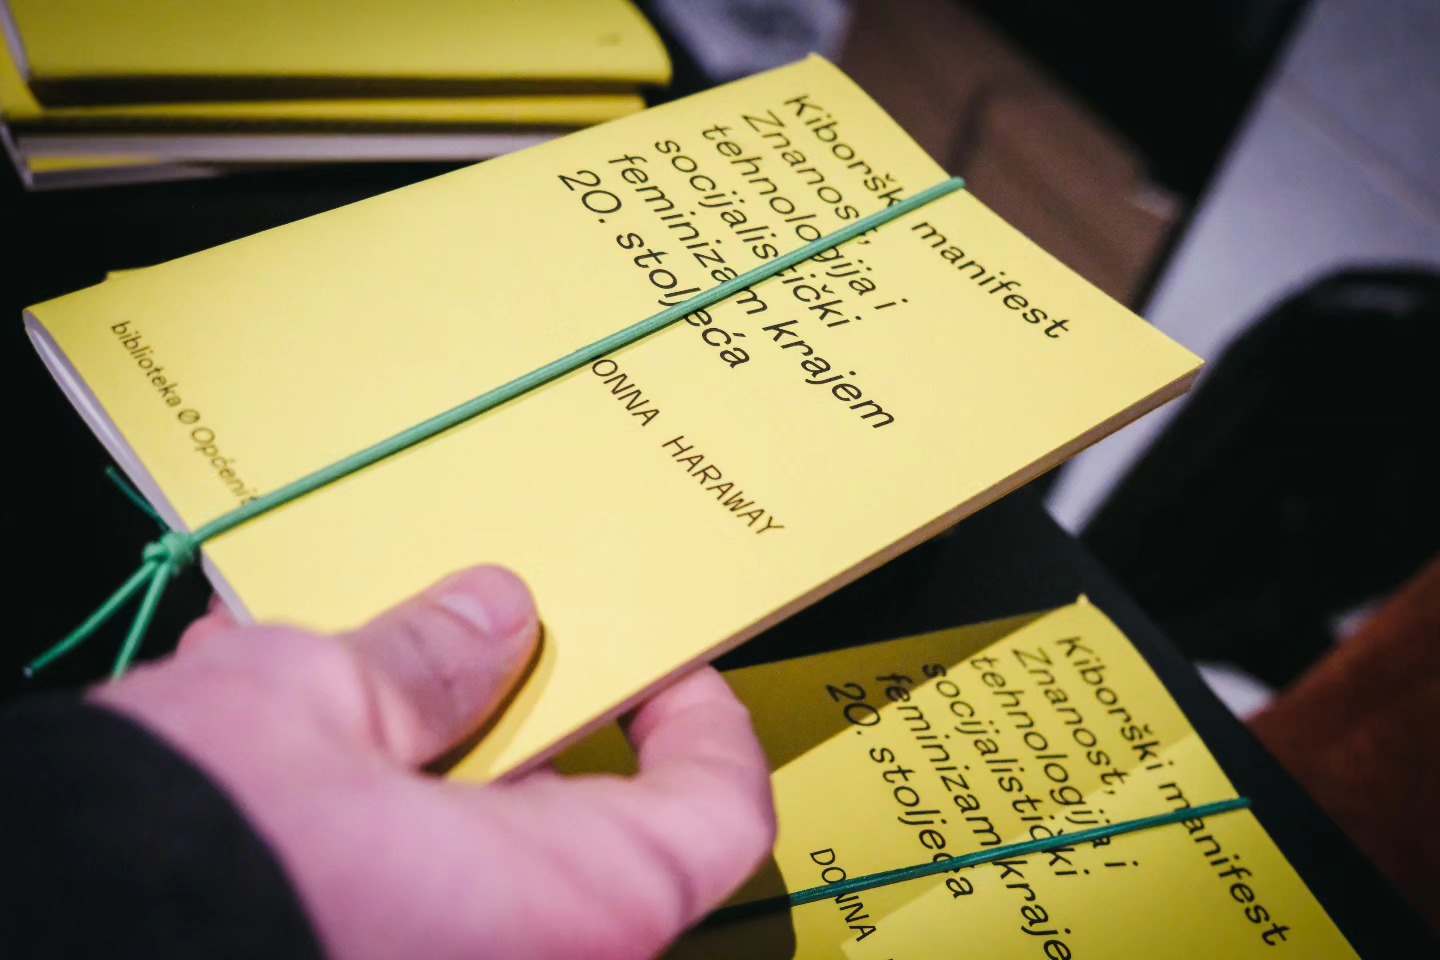 Kiborški manifest
Znanost,
tehnologija i
socijalistički
feminizam krajem
20. stoljeća
DONNA HARAWAY
biblioteka Ø Općenit
Kiborški manifest
Znanost,
tehnologija i
socijalistički
feminizam kraje
20. stoljeća
DONNA